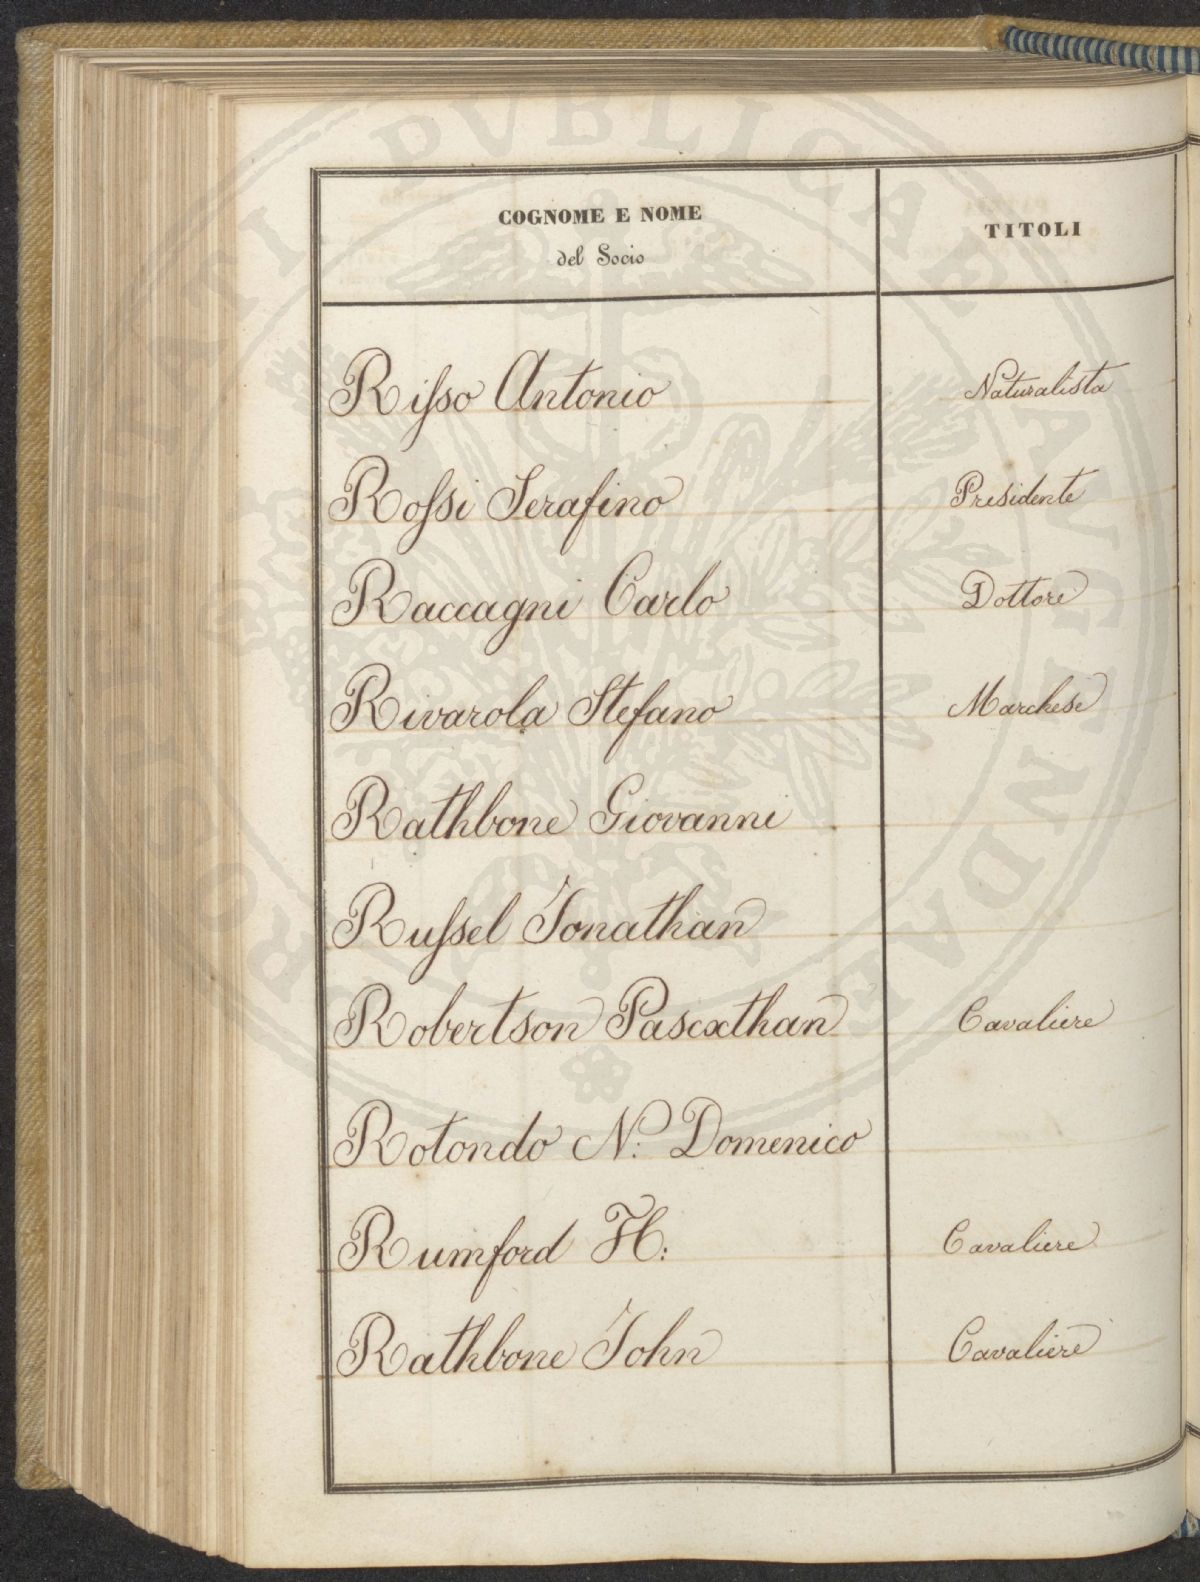 COGNOME E NOME
del Socio
TITOLI
Risso Antonio Naturalista
Rossi Serafino Presidente
Raccagni Carlo Dottore
Rivarola Stefano Marchese
Rathbone Giovanni
Russel Jonathan
Robertson Pasexthan Cavaliere
Rotondo N: Domenico
Rumford H: Cavaliere
Rathbone John Cavaliere